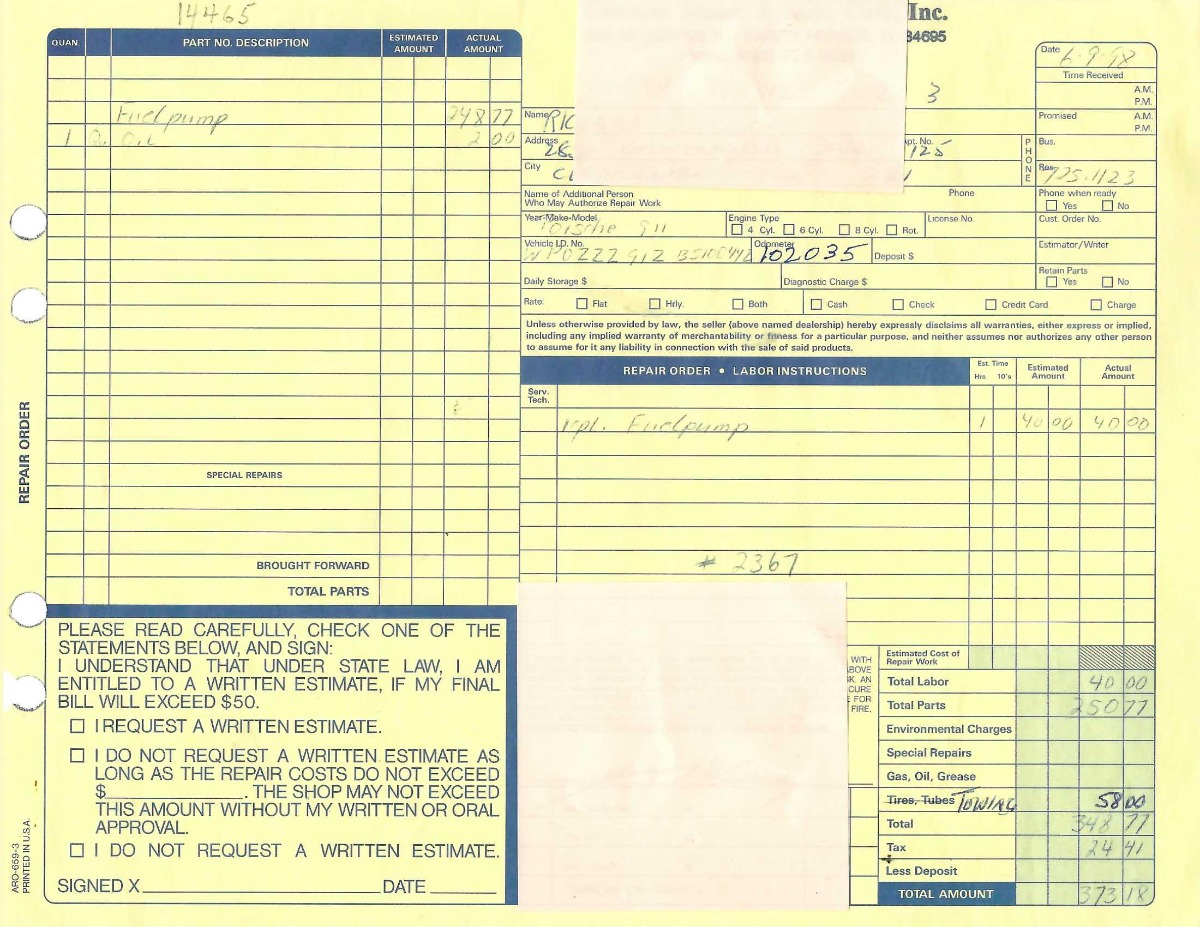 14465
Inc.
34695
QUAN. PART NO. DESCRIPTION ESTIMATED AMOUNT ACTUAL AMOUNT
Fuelpump 248 77
1 Qu. OIL 2 00
SPECIAL REPAIRS
BROUGHT FORWARD
TOTAL PARTS
REPAIR ORDER
ARO-659-3
PRINTED IN U.S.A.
PLEASE READ CAREFULLY, CHECK ONE OF THE
STATEMENTS BELOW, AND SIGN:
I UNDERSTAND THAT UNDER STATE LAW, I AM
ENTITLED TO A WRITTEN ESTIMATE, IF MY FINAL
BILL WILL EXCEED $50.
I REQUEST A WRITTEN ESTIMATE.
I DO NOT REQUEST A WRITTEN ESTIMATE AS
LONG AS THE REPAIR COSTS DO NOT EXCEED
$ . THE SHOP MAY NOT EXCEED
THIS AMOUNT WITHOUT MY WRITTEN OR ORAL
APPROVAL.
I DO NOT REQUEST A WRITTEN ESTIMATE.
SIGNED X DATE
3
Date 6-9-98
Time Received
A.M.
P.M.
Name RIC
Promised A.M.
P.M.
Address 28 pt. No. 125
PHONE
Bus.
City CL
Res. 725-1123
Name of Additional Person
Who May Authorize Repair Work
Phone
Phone when ready
Yes No
Year-Make-Model Porsche 911
Engine Type
4 Cyl. 6 Cyl. 8 Cyl. Rot.
License No.
Cust. Order No.
Vehicle I.D. No. WPOZZZ 91Z BS100442
Odometer 102035
Deposit $
Estimator/Writer
Daily Storage $
Diagnostic Charge $
Retain Parts
Yes No
Rate: Flat Hrly. Both Cash Check Credit Card Charge
Unless otherwise provided by law, the seller (above named dealership) hereby expressly disclaims all warranties, either express or implied,
including any implied warranty of merchantability or fitness for a particular purpose, and neither assumes nor authorizes any other person
to assume for it any liability in connection with the sale of said products.
REPAIR ORDER • LABOR INSTRUCTIONS Est. Time Hrs. 10's Estimated Amount Actual Amount
Serv. Tech.
rpl. Fuelpump 1 40 00 40 00
# 2367
WITH
ABOVE
SK. AN
CURE
E FOR
FIRE,
Estimated Cost of
Repair Work
Total Labor 40 00
Total Parts 250 77
Environmental Charges
Special Repairs
Gas, Oil, Grease
Tires, Tubes TOWING 58 00
Total 348 77
Tax 24 41
Less Deposit
TOTAL AMOUNT 373 18